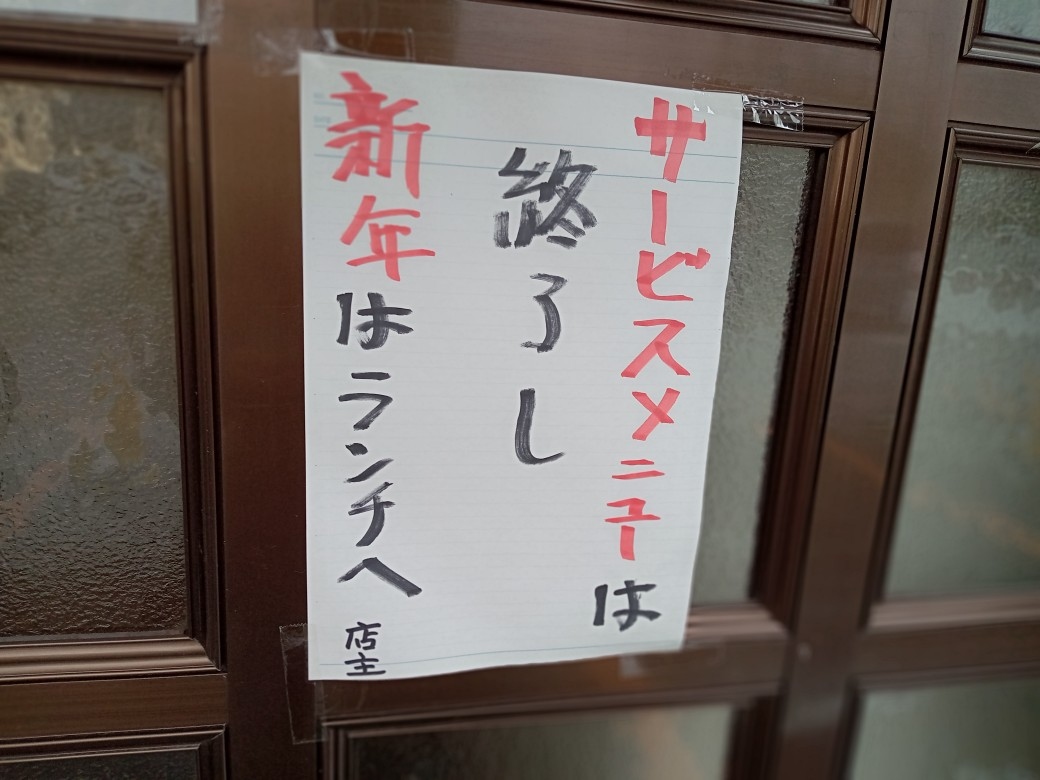 サービスメニューは
終了し
新年はランチへ
店主